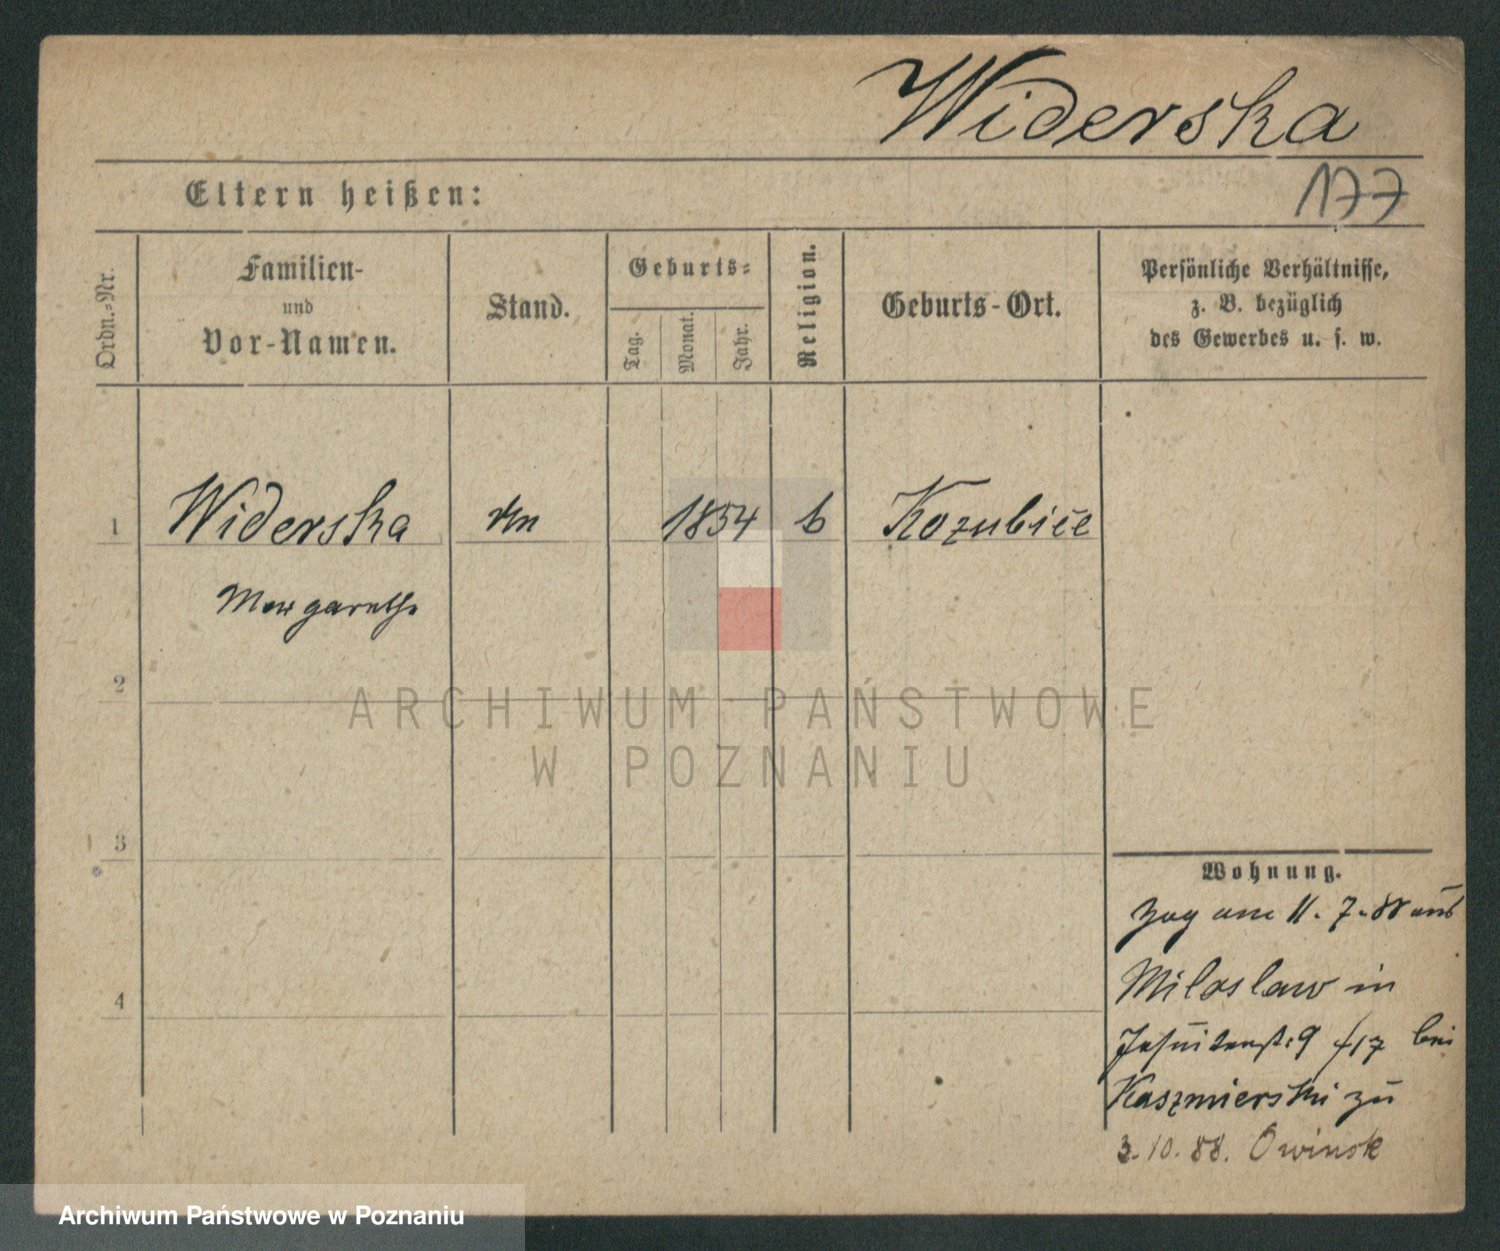 Widerska
Eltern heißen:
177
Ordn.-Nr.
Familien-
und
Vor-Namen.
Stand.
Geburts-
Tag.
Monat.
Jahr.
Religion.
Geburts-Ort.
Persönliche Verhältnisse,
z. B. bezüglich
des Gewerbes u. s. w.
1 Widerska 1854 Kozubiec
Margarethe
2
3
4
Wohnung.
Zog am 11. 7. 88 aus
Miloslaw in
Jesuitenst. 9 bei
Kaszmierski zu
3. 10. 88. Owinsk
ARCHIWUM PAŃSTWOWE
W POZNANIU
Archiwum Państwowe w Poznaniu